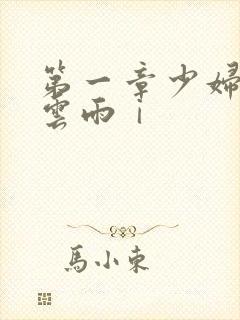 第一章少婦
雲雨｜
馬小東